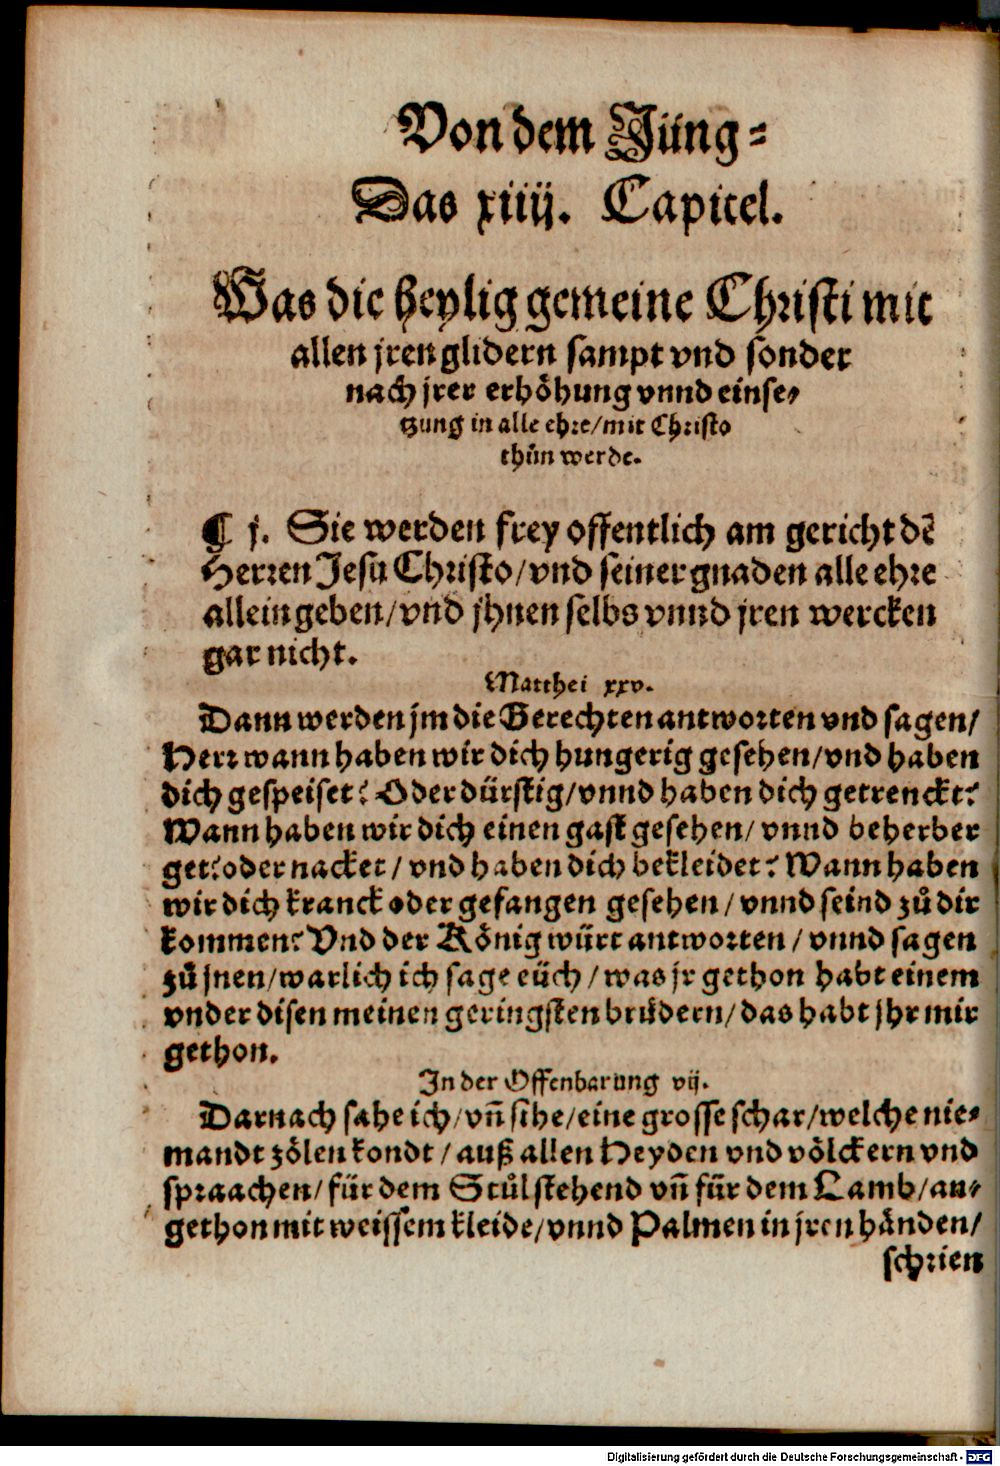 Von dem Jüng⸗
Das xiiij. Capitel.
Was die heylig gemeine Christi mit
allen jren glidern sampt vnd sonder
nach jrer erhöhung vnnd einse⸗
tzung in alle ehre/mit Christo
thůn werde.
¶ j. Sie werden frey offentlich am gericht dẽ
Herren Jesu Christo/vnd seiner gnaden alle ehre
allein geben/vnd jhnen selbs vnnd jren wercken
gar nicht.
Matthei xxv.
Dann werden jm die Gerechten antworten vnd sagen/
Herr wann haben wir dich hungerig gesehen/vnd haben
dich gespeiset? Oder dürstig/vnnd haben dich getrenckt?
Wann haben wir dich einen gast gesehen/ vnnd beherber
get? oder nacket/ vnd haben dich bekleidet? Wann haben
wir dich kranck oder gefangen gesehen/ vnnd seind zů dir
kommen? Vnd der König würt antworten/ vnnd sagen
zů jnen/warlich ich sage eüch/was jr gethon habt einem
vnder disen meinen geringsten brůdern/das habt jhr mir
gethon.
In der Offenbarung vij.
Darnach sahe ich/vñ sihe/eine grosse schar/welche nie⸗
mandt zölen kondt/auß allen Heyden vnd völckern vnd
spraachen/für dem Stůl stehend vñ für dem Lamb/an⸗
gethon mit weissem kleide/vnnd Palmen in jren händen/
schrien
Digitalisierung gefördert durch die Deutsche Forschungsgemeinschaft - DFG